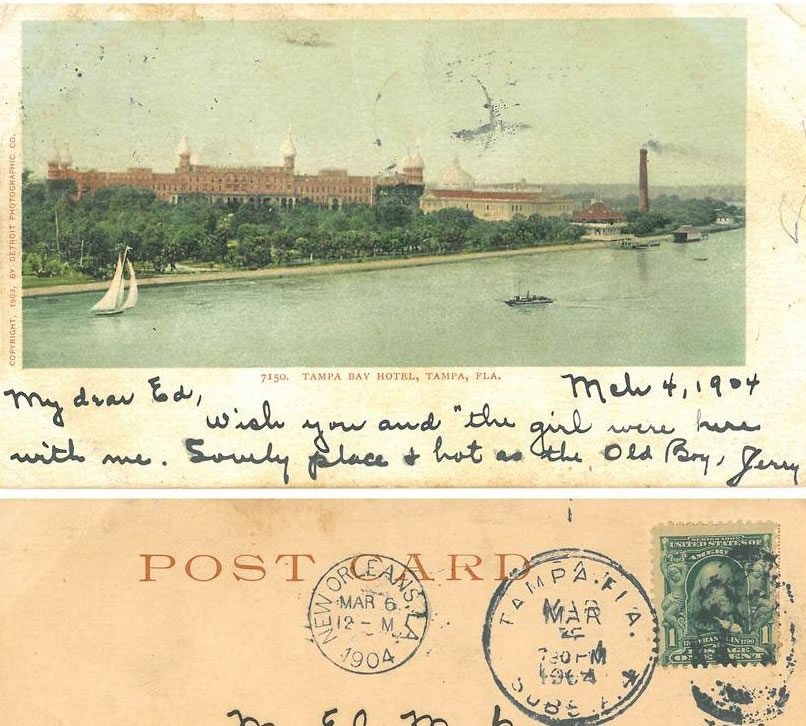 COPYRIGHT, 1903, BY DETROIT PHOTOGRAPHIC CO.
7150. TAMPA BAY HOTEL, TAMPA, FLA.
Mch 4, 1904
My dear Ed,
Wish you and "the girl were here
with me. Lovely place & hot as the Old Boy, Jerry
POST CARD
NEW ORLEANS, LA.
MAR 6
12 - M
1904
TAMPA. FLA.
MAR
730 PM
1904
SERIES 1902
UNITED STATES OF
AMERICA
1 FRANKLIN 1790 1
POSTAGE
ONE CENT
Ed